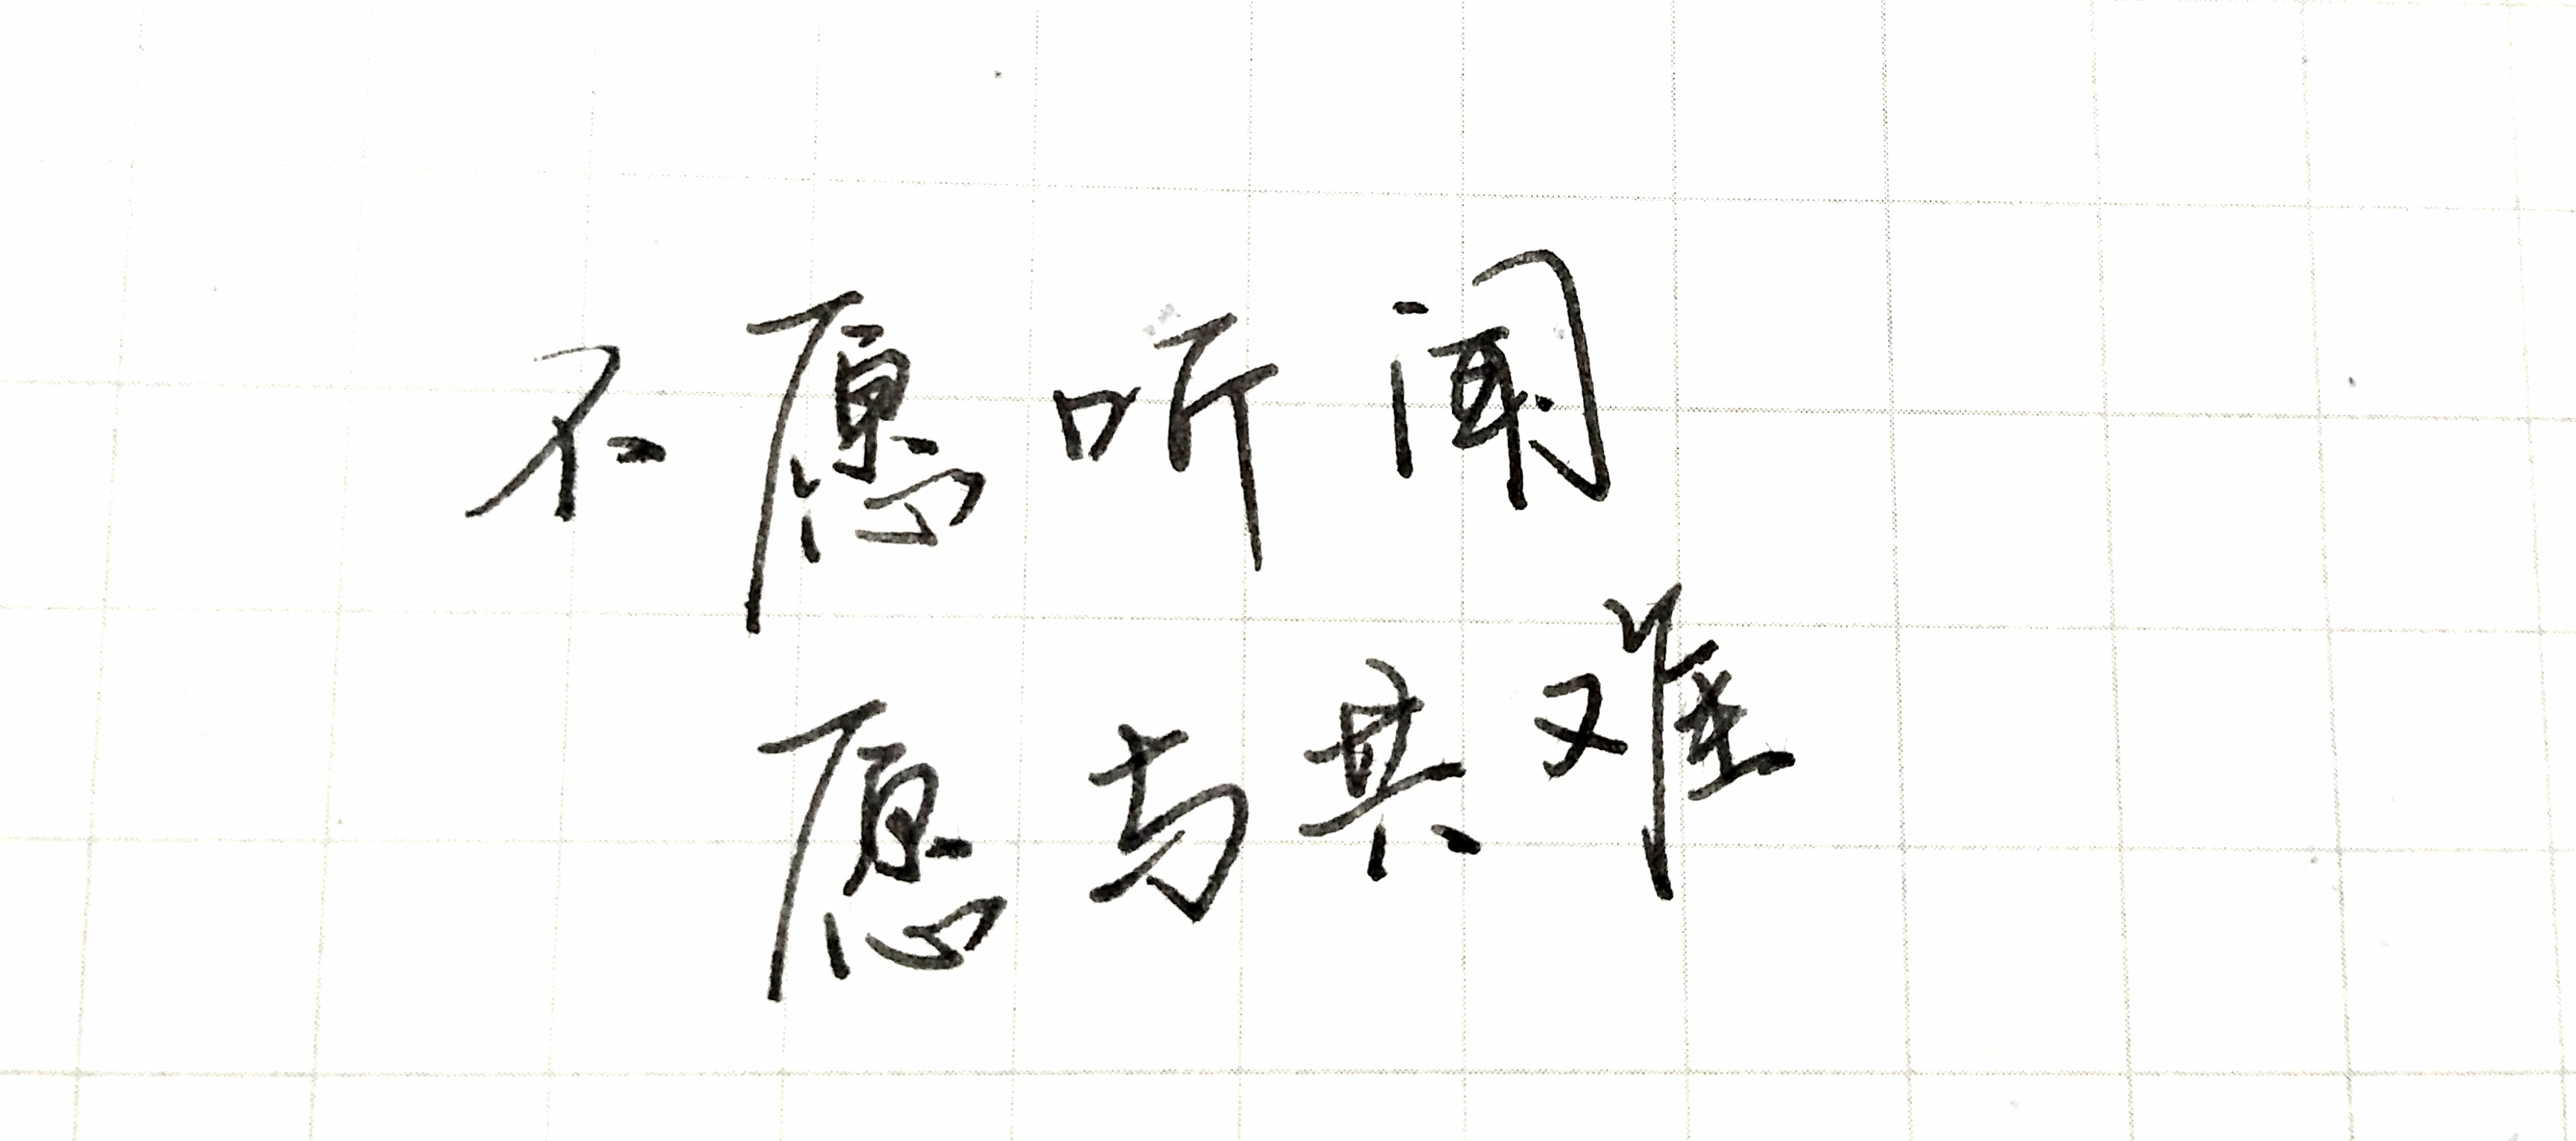 不愿听闻
愿与共难